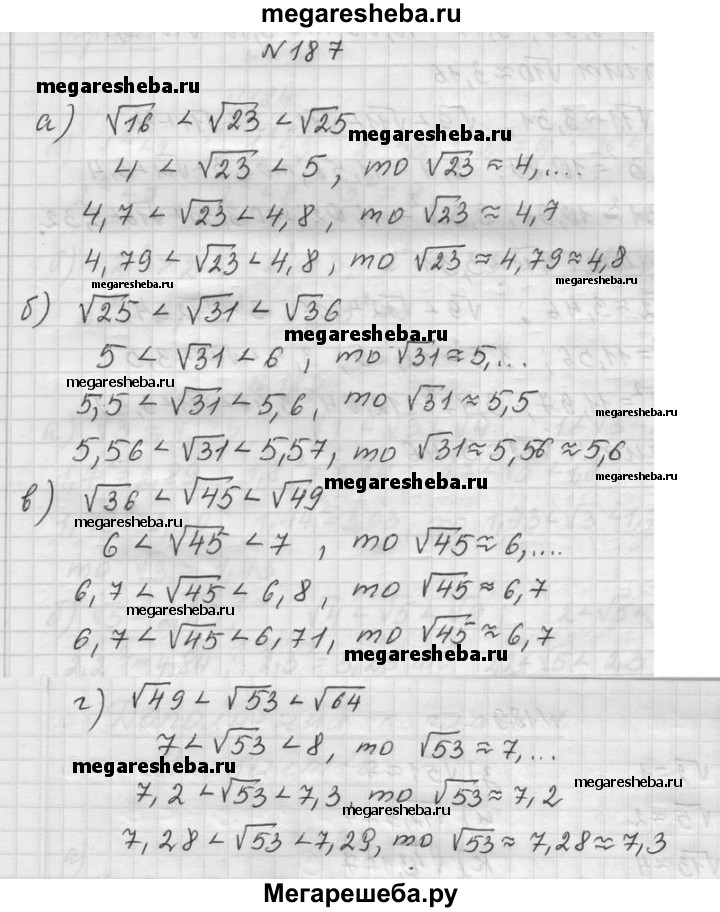 megaresheba.ru
N187
megaresheba.ru
а) √16 < √23 < √25
megaresheba.ru
4 < √23 < 5, то √23 ≈ 4,....
4,7 < √23 < 4,8, то √23 ≈ 4,7
4,79 < √23 < 4,8, то √23 ≈ 4,79 ≈ 4,8
megaresheba.ru
megaresheba.ru
б) √25 < √31 < √36
megaresheba.ru
5 < √31 < 6, то √31 ≈ 5,...
megaresheba.ru
5,5 < √31 < 5,6, то √31 ≈ 5,5
megaresheba.ru
5,56 < √31 < 5,57, то √31 ≈ 5,56 ≈ 5,6
megaresheba.ru
в) √36 < √45 < √49
megaresheba.ru
megaresheba.ru
6 < √45 < 7, то √45 ≈ 6,....
6,7 < √45 < 6,8, то √45 ≈ 6,7
megaresheba.ru
6,7 < √45 < 6,71, то √45 ≈ 6,7
megaresheba.ru
г) √49 < √53 < √64
7 < √53 < 8, то √53 ≈ 7,...
megaresheba.ru
megaresheba.ru
7,2 < √53 < 7,3, то √53 ≈ 7,2
megaresheba.ru
7,28 < √53 < 7,29, то √53 ≈ 7,28 ≈ 7,3
Мегарешеба.ру